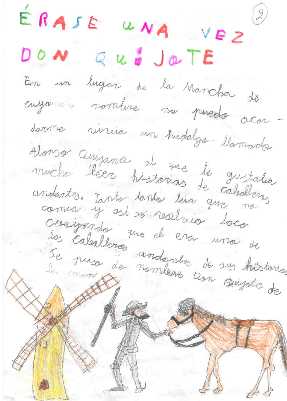 ÉRASE UNA VEZ
2
DON QUIJOTE
En un lugar de la Mancha de
cuyo nombre no puedo acor
darme vivia un hidalgo llamado
Alonso Quijana al que le gustaba
mucho leer historias de caballeros
andantes. Tanto tanto leia que no
comia y asi se volvio loco
creyendo que el era uno de
los caballeros andantes de sus historias
Se puso de nombre Don Quijote de
la